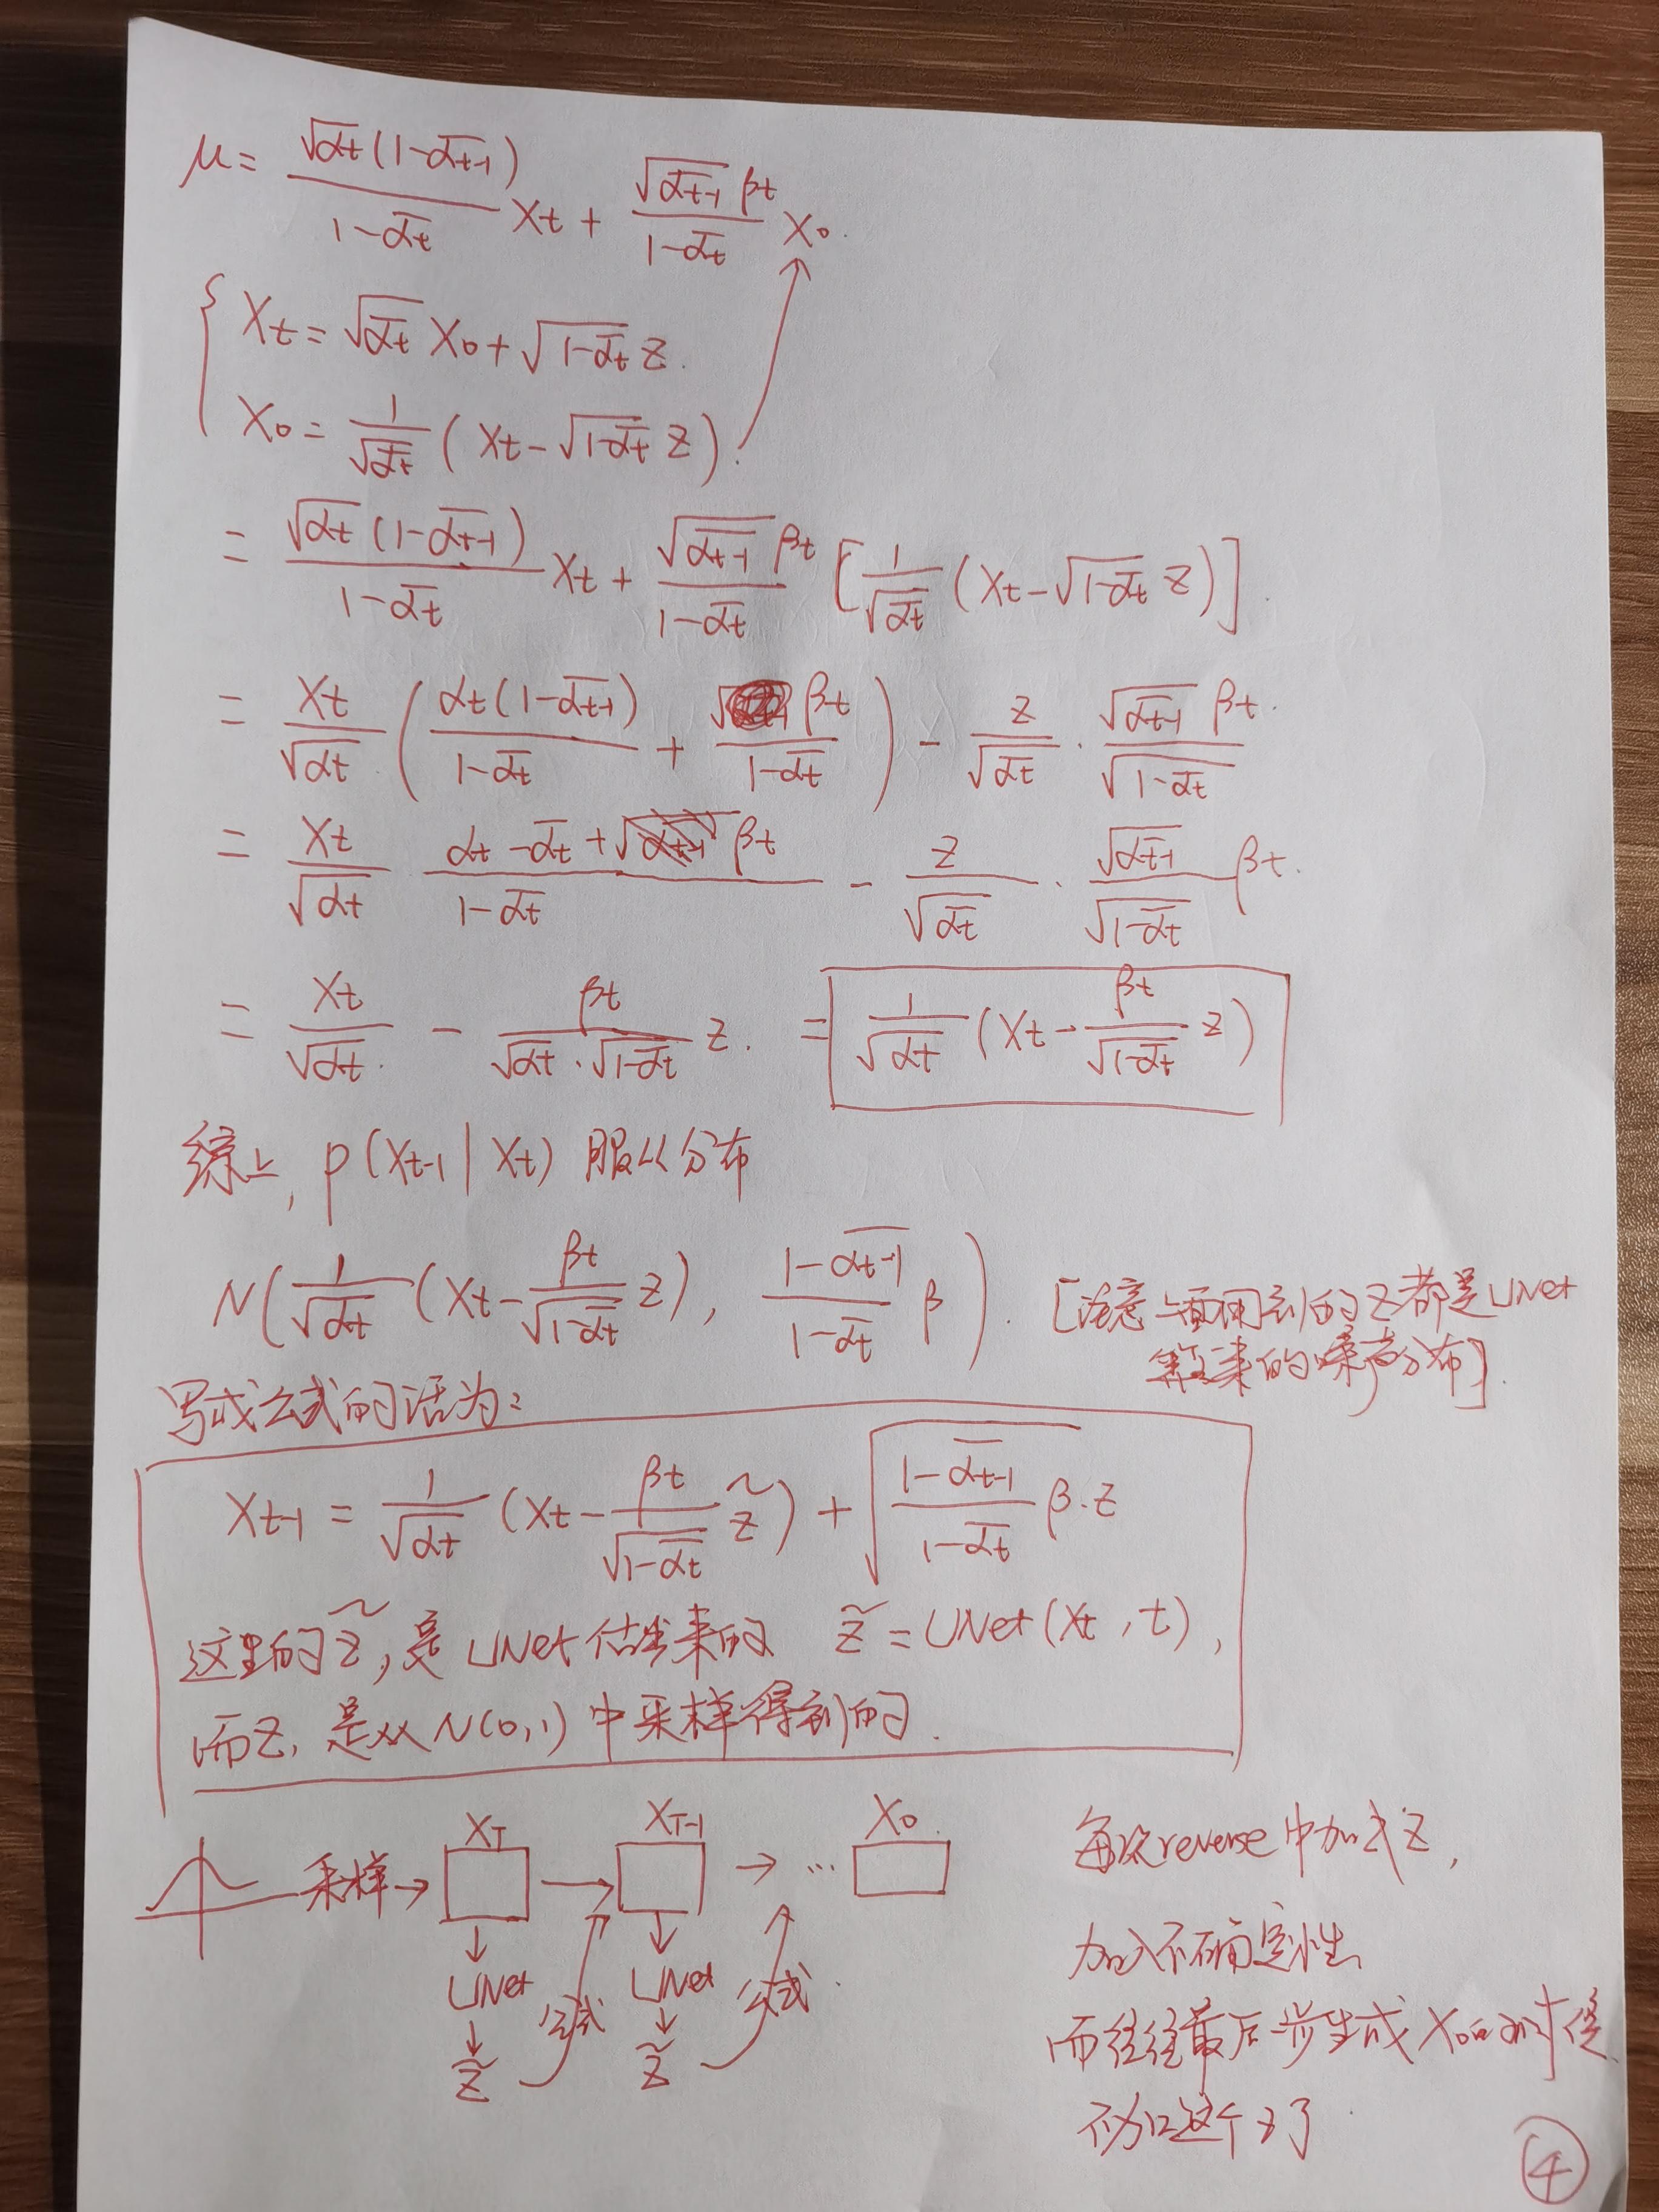 μ = √αt (1-ᾱt-1) / (1-ᾱt) Xt + √ᾱt-1 βt / (1-ᾱt) X0.
Xt = √ᾱt X0 + √(1-ᾱt) z.
X0 = 1/√ᾱt (Xt - √(1-ᾱt) z).
= √αt (1-ᾱt-1) / (1-ᾱt) Xt + √ᾱt-1 βt / (1-ᾱt) [1/√ᾱt (Xt - √(1-ᾱt) z)].
= Xt/√αt (αt(1-ᾱt-1) / (1-ᾱt) + βt / (1-ᾱt)) - z/√ᾱt · √ᾱt-1 βt / √(1-ᾱt).
= Xt/√αt (αt - ᾱt + βt) / (1-ᾱt) - z/√ᾱt · √ᾱt-1 / √(1-ᾱt) βt.
= Xt/√αt - βt / (√αt · √(1-ᾱt)) z. = 1/√αt (Xt - βt/√(1-ᾱt) z)
综上, p(Xt-1 | Xt) 服从分布
N(1/√αt (Xt - βt/√(1-ᾱt) z), (1-ᾱt-1)/(1-ᾱt) β). [注意上面用到的z都是UNet
算出来的噪声分布].
写成公式的话为:
Xt-1 = 1/√αt (Xt - βt/√(1-ᾱt) z̃) + √((1-ᾱt-1)/(1-ᾱt) β)·z
这里的z̃, 是UNet估出来的 z̃ = UNet(Xt, t),
而z, 是从N(0,1)中采样得到的.
XT XT-1 X0
采样→ → → ...
UNet 公式 UNet 公式
z̃ z̃
每次reverse中加或z,
加入不确定性
而往往最后一步生成X0的时候
不加这个z了
④